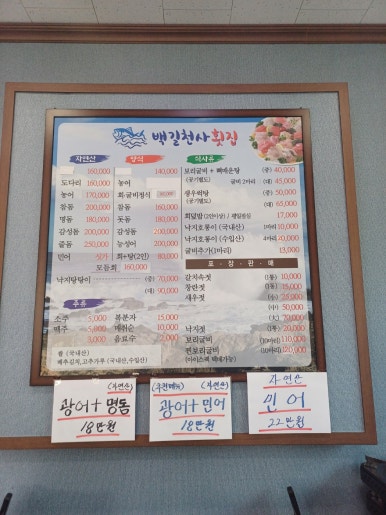 백길천사횟집
자연산
160,000
도다리 160,000
농어 160,000
참돔 200,000
명동 180,000
감성돔 200,000
줄돔 250,000
민어 싯가
모듬회 160,000
낙지탕탕이 (중) 70,000
(대) 90,000
양식
140,000
농어
화·굴비정식
참돔 200,000
돗돔 180,000
감성돔 200,000
능성어 200,000
회+탕(2인) 80,000
주류
소주 5,000
맥주 5,000
3,000
복분자 15,000
매취순 10,000
음료수 2,000
쌀 (국내산)
배추김치,고추가루 (국내산,수입산)
식사류
보리굴비 + 뼈매운탕 (중) 40,000
(공기별도) 굴비2마리 (대) 45,000
광우럭탕 (중) 50,000
(공기별도) (대) 65,000
회덮밥(2인이상) / 평일점심 17,000
낙지호롱이 (국내산) 1마리 10,000
낙지호롱이 (수입산) 4마리 20,000
굴비추가(1마리) 13,000
포.장.판.매
갈치속젓 (1통) 10,000
창란젓 (1통) 15,000
새우젓 (소) 25,000
(중) 50,000
(大) 70,000
낙지젓 (1통) 20,000
보리굴비 (10마리) 110,000
찐보리굴비 (10마리) 120,000
(아이스팩 택배가능)
(자연산)
광어+명돔
18만원
(추천메뉴) (자연산)
광어+민어
18만원
자연산
민어
22만원